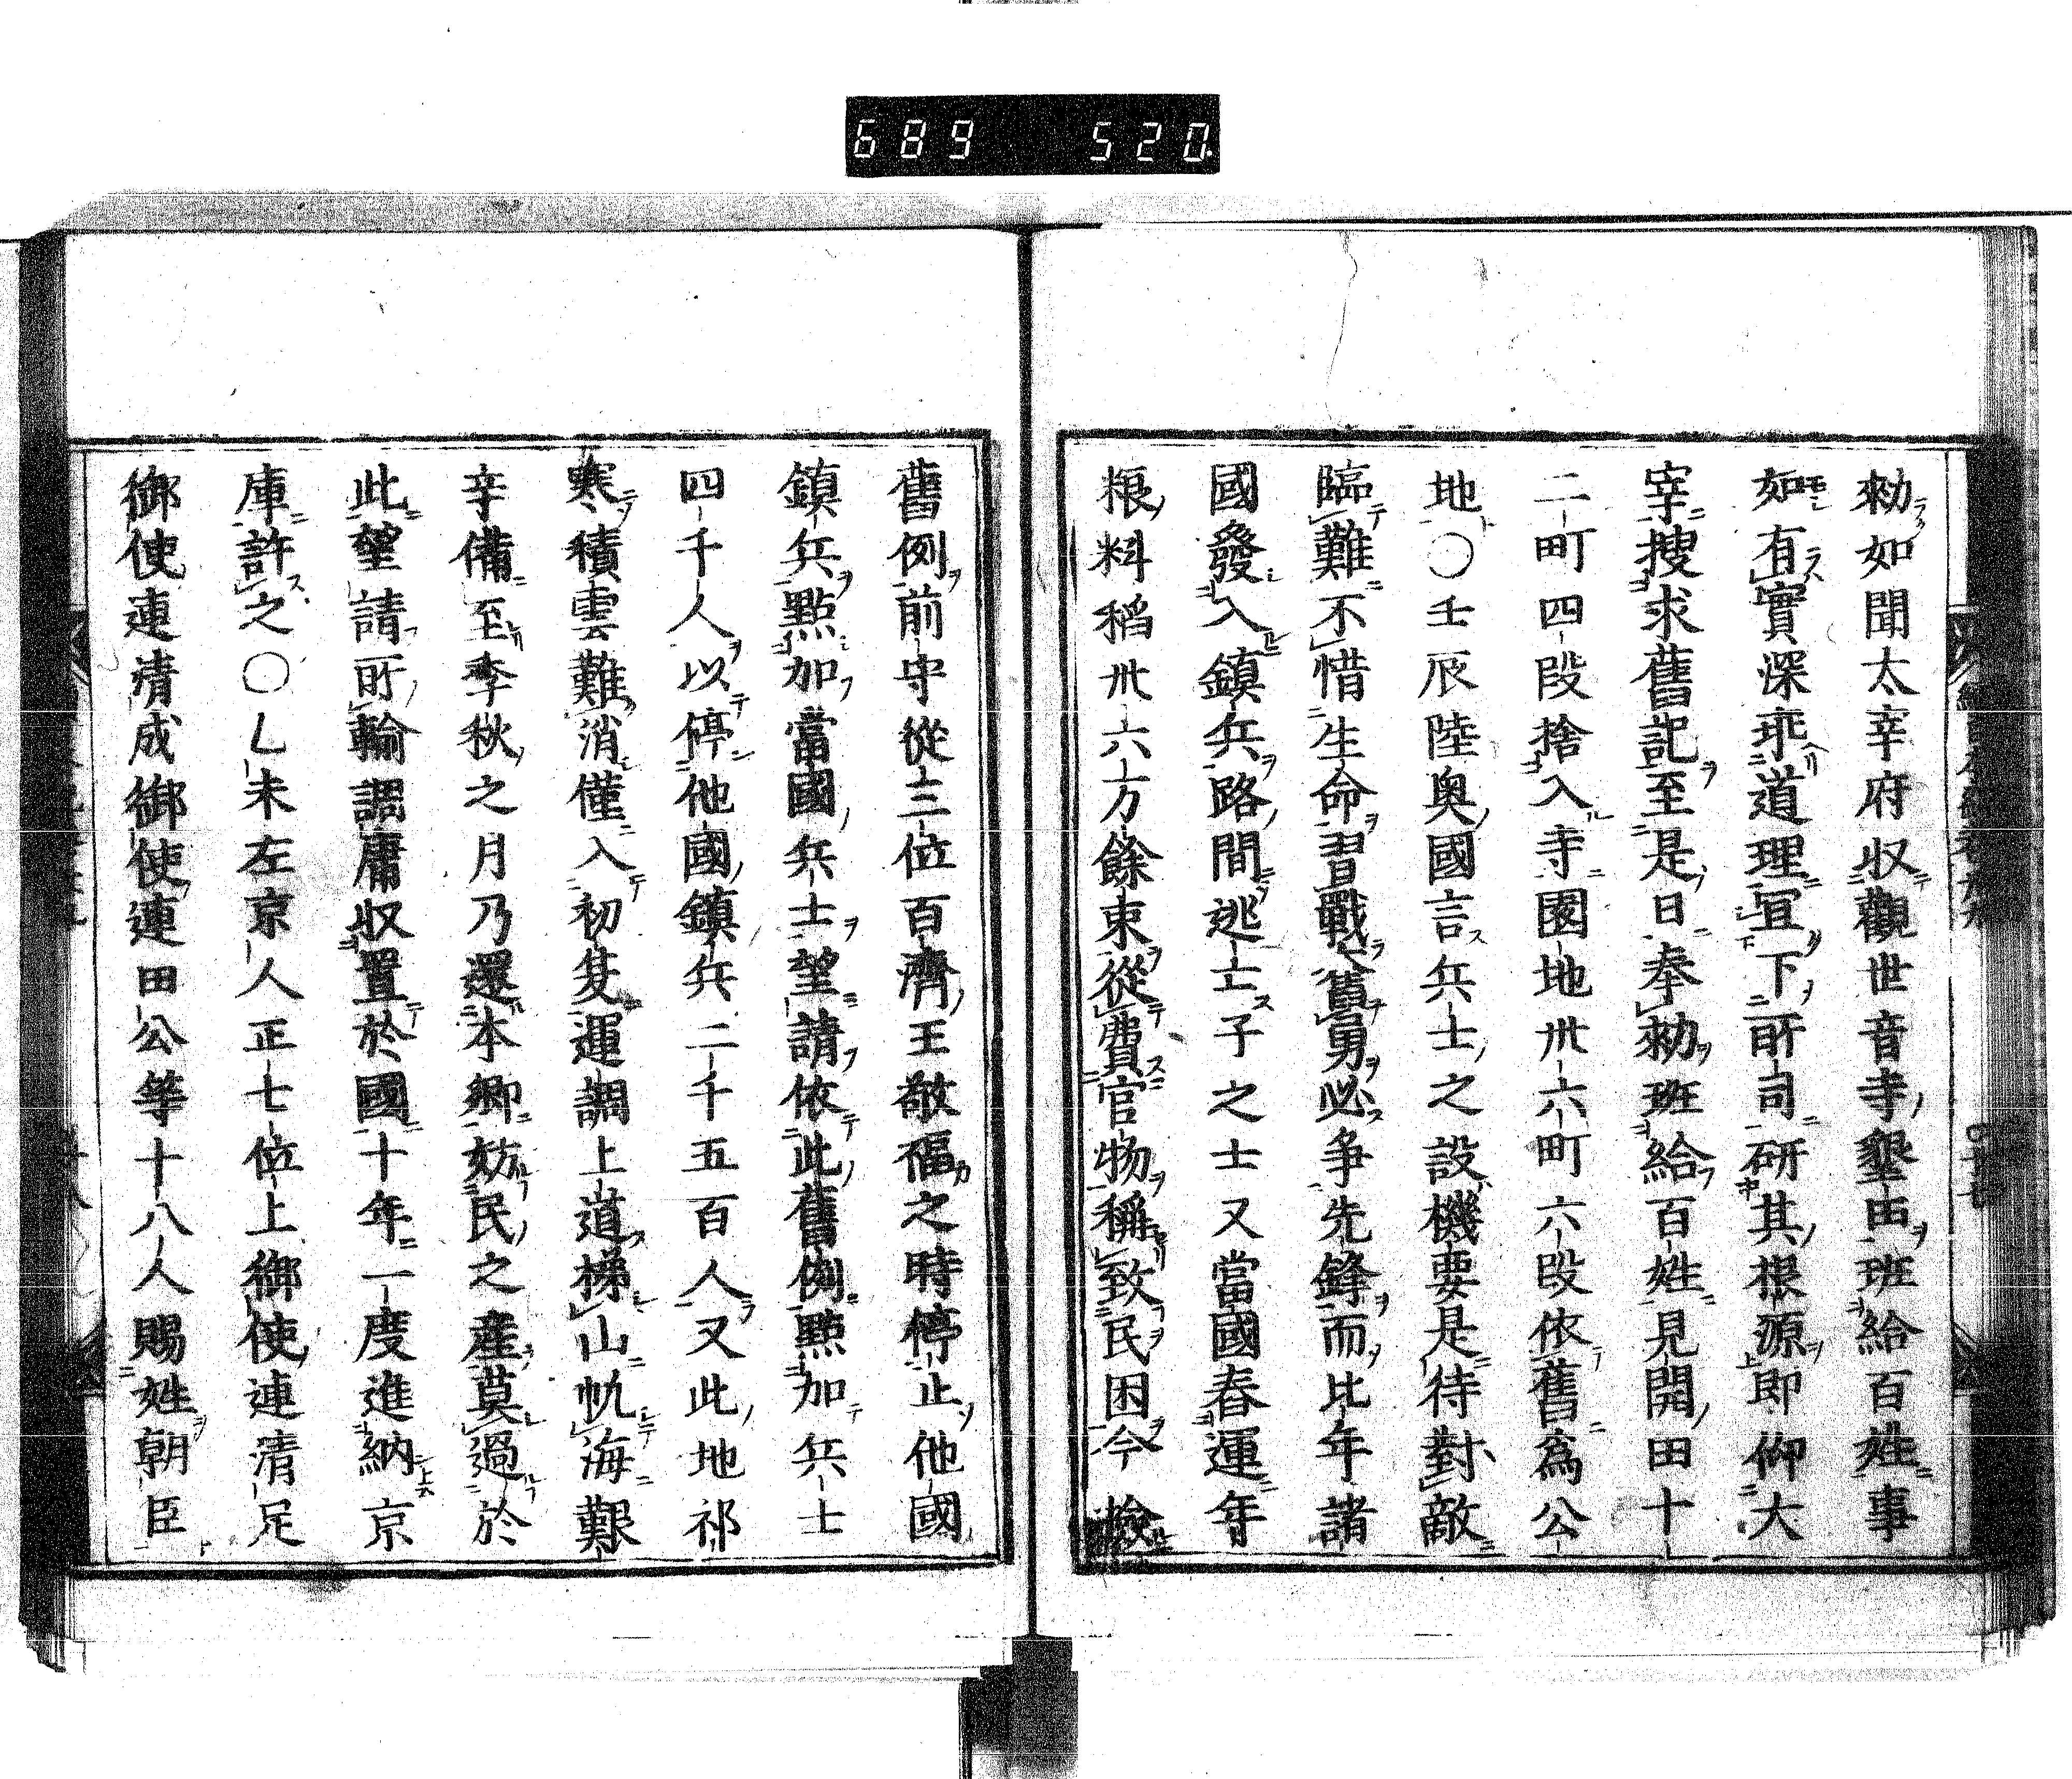 689 520
勑如聞太宰府収觀世音寺墾田班給百姓事
如有實深乖道理宜下所司研其根源即仰大
宰搜求舊記至是日奉勑班給百姓見開田十
二町四段捨入寺園地卅六町六段依舊爲公
地○壬辰陸奥國言兵士之設機要是待對敵
臨難不惜生命習戰奮勇必爭先鋒而比年諸
國發入鎮兵路間逃士子之士又當國舂運年
粮料稻卅六万餘束從費官物稱致民困今檢
舊例前守從三位百濟王敬福之時停止他國
鎮兵點加當國兵士望請依此舊例點加兵士
四千人以停他國鎮兵二千五百人又此地祁
寒積雲難消僅入初夏運調上道梯山帆海艱
辛備至季秋之月乃還本鄉妨民之産莫過於
此望請所輸調庸収置於國十年一度進納京
庫許之○乙未左京人正七位上御使連清足
御使連清成御使連田公等十八人賜姓朝臣